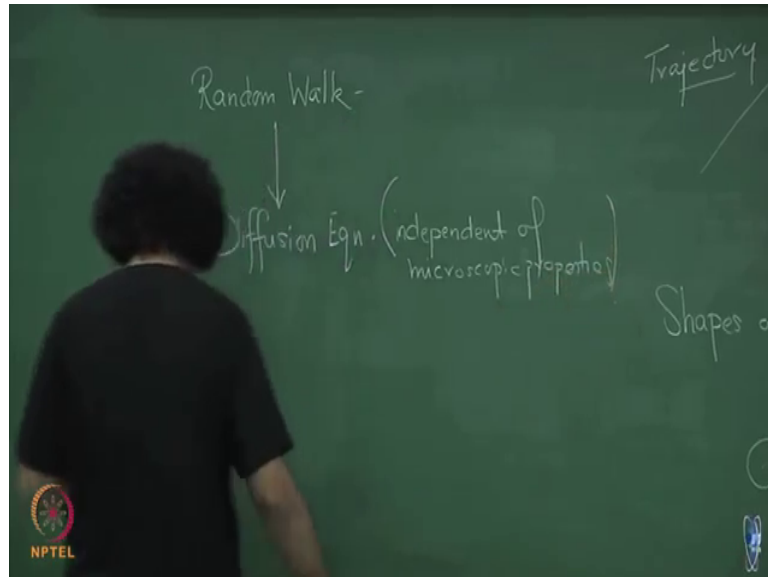 Random Walk-
Diffusion Eqn. (independent of
microscopic properties)
Trajectory
Shapes o
NPTEL